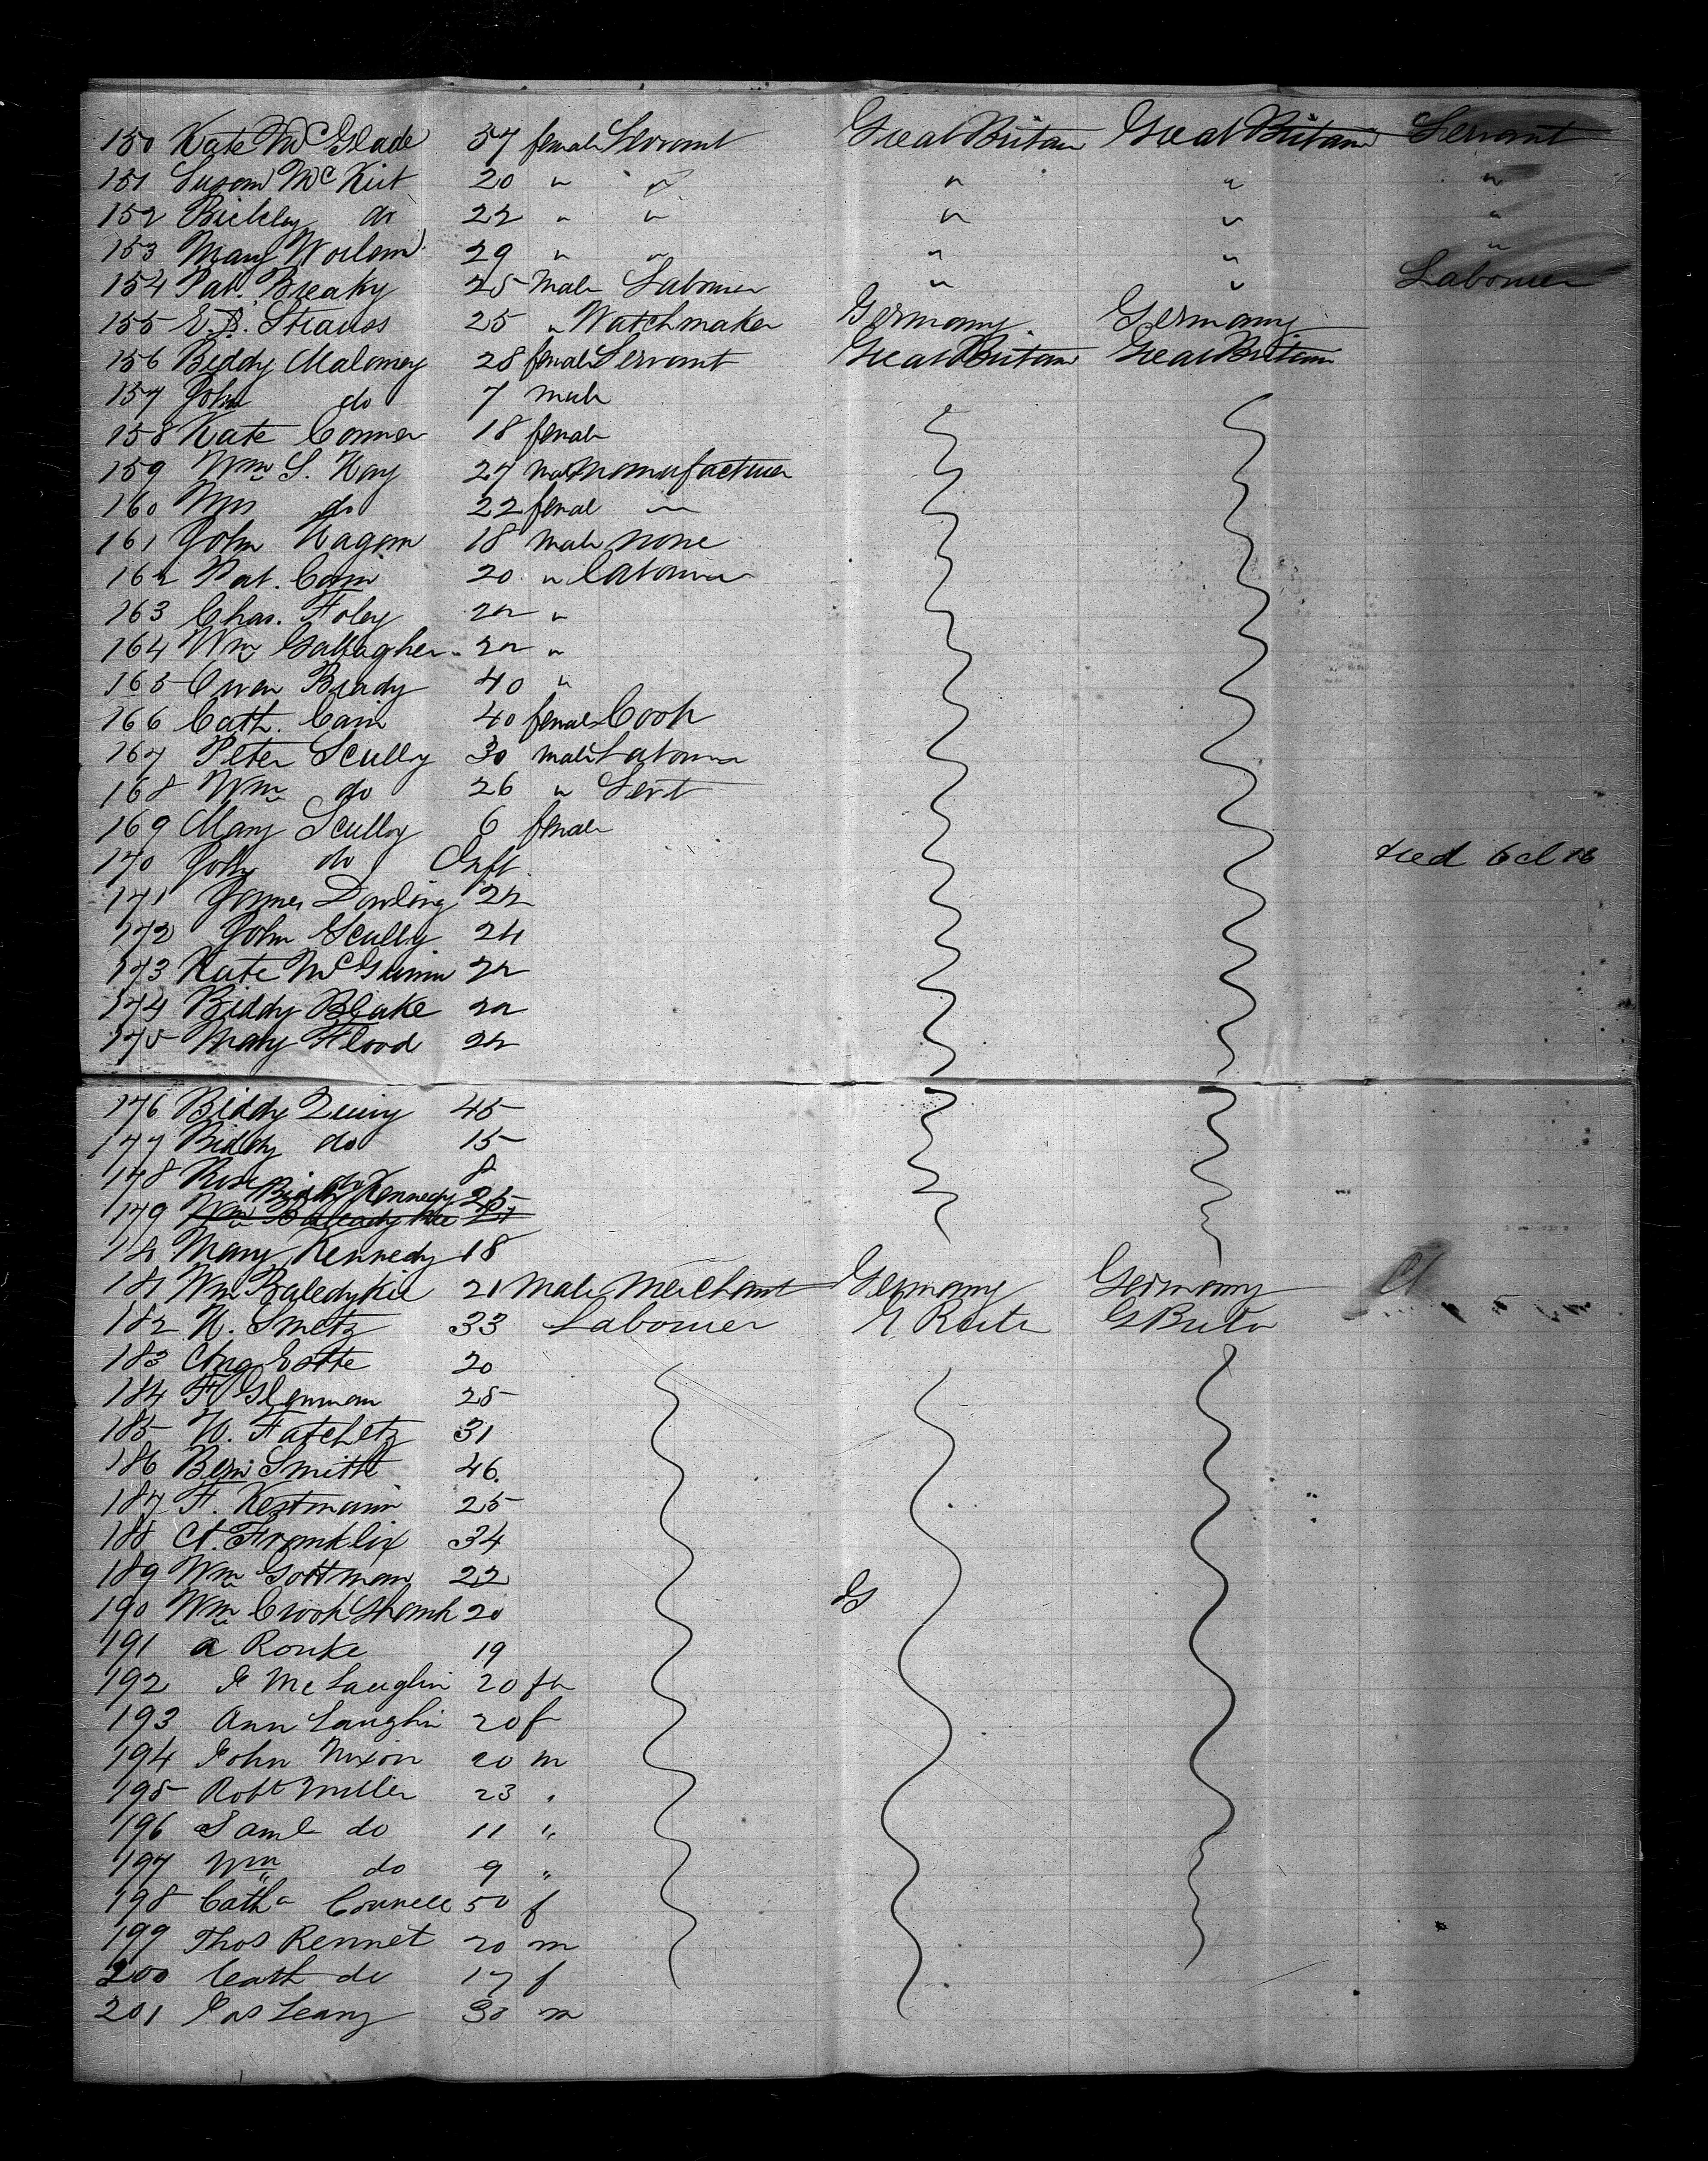 150 Kate McGlade 37 female Servant Great Britain Great Britain Servant
151 Susan McKirt 20 " " " " "
152 Bickley do 22 " " " " "
153 Mary 29 " " " " "
154 Pat. Breaky 25 Male Labourer " " Labourer
155 E. B. Strauss 25 " Watchmaker Germany Germany
156 Biddy Maloney 28 female Servant Great Britain Great Britain
157 John do 7 male
158 Kate Conner 18 female
159 Wm S. Kay 27 male Manufacturer
160 Mrs do 22 female "
161 John Kagan 18 male none
162 Pat. Cain 20 " Labourer
163 Chas. Foley 22 "
164 Wm Gallagher 22 "
165 Owen Brady 40 "
166 Cath. Cain 40 female Cook
167 Peter Scully 30 male Labourer
168 Wm do 26 " Servt
169 Mary Scully 6 female
170 John do Inft. died Oct 16
171 James Dowling 22
172 John Scully 24
173 Kate 22
174 Biddy Blake 22
175 Mary Flood 22
176 Biddy 45
177 Biddy do 15
178 Rose do 8
Biddy Kennedy 25
179 Wm 21
180 Mary Kennedy 18
181 Wm 21 Male Merchant Germany Germany
182 N. Smetz 33 Labourer G Brita G Brita
183 20
184 F. Glenman 25
185 W. Fatchetz 31
186 Benj Smith 46.
187 F. Kestmann 25
188 A. Franklin 34
189 Wm Gottman 22
190 Wm Crookshank 20 G
191 a Rouke 19
192 J McLaughlin 20 fm
193 Ann Laughlin 20 f
194 John Nixon 20 m
195 Robt Miller 23 "
196 Saml do 11 "
197 Wm do 9 "
198 Catha Connell 50 f
199 Thos Rennet 20 m
200 Cath do 17 f
201 Jas Leary 30 m